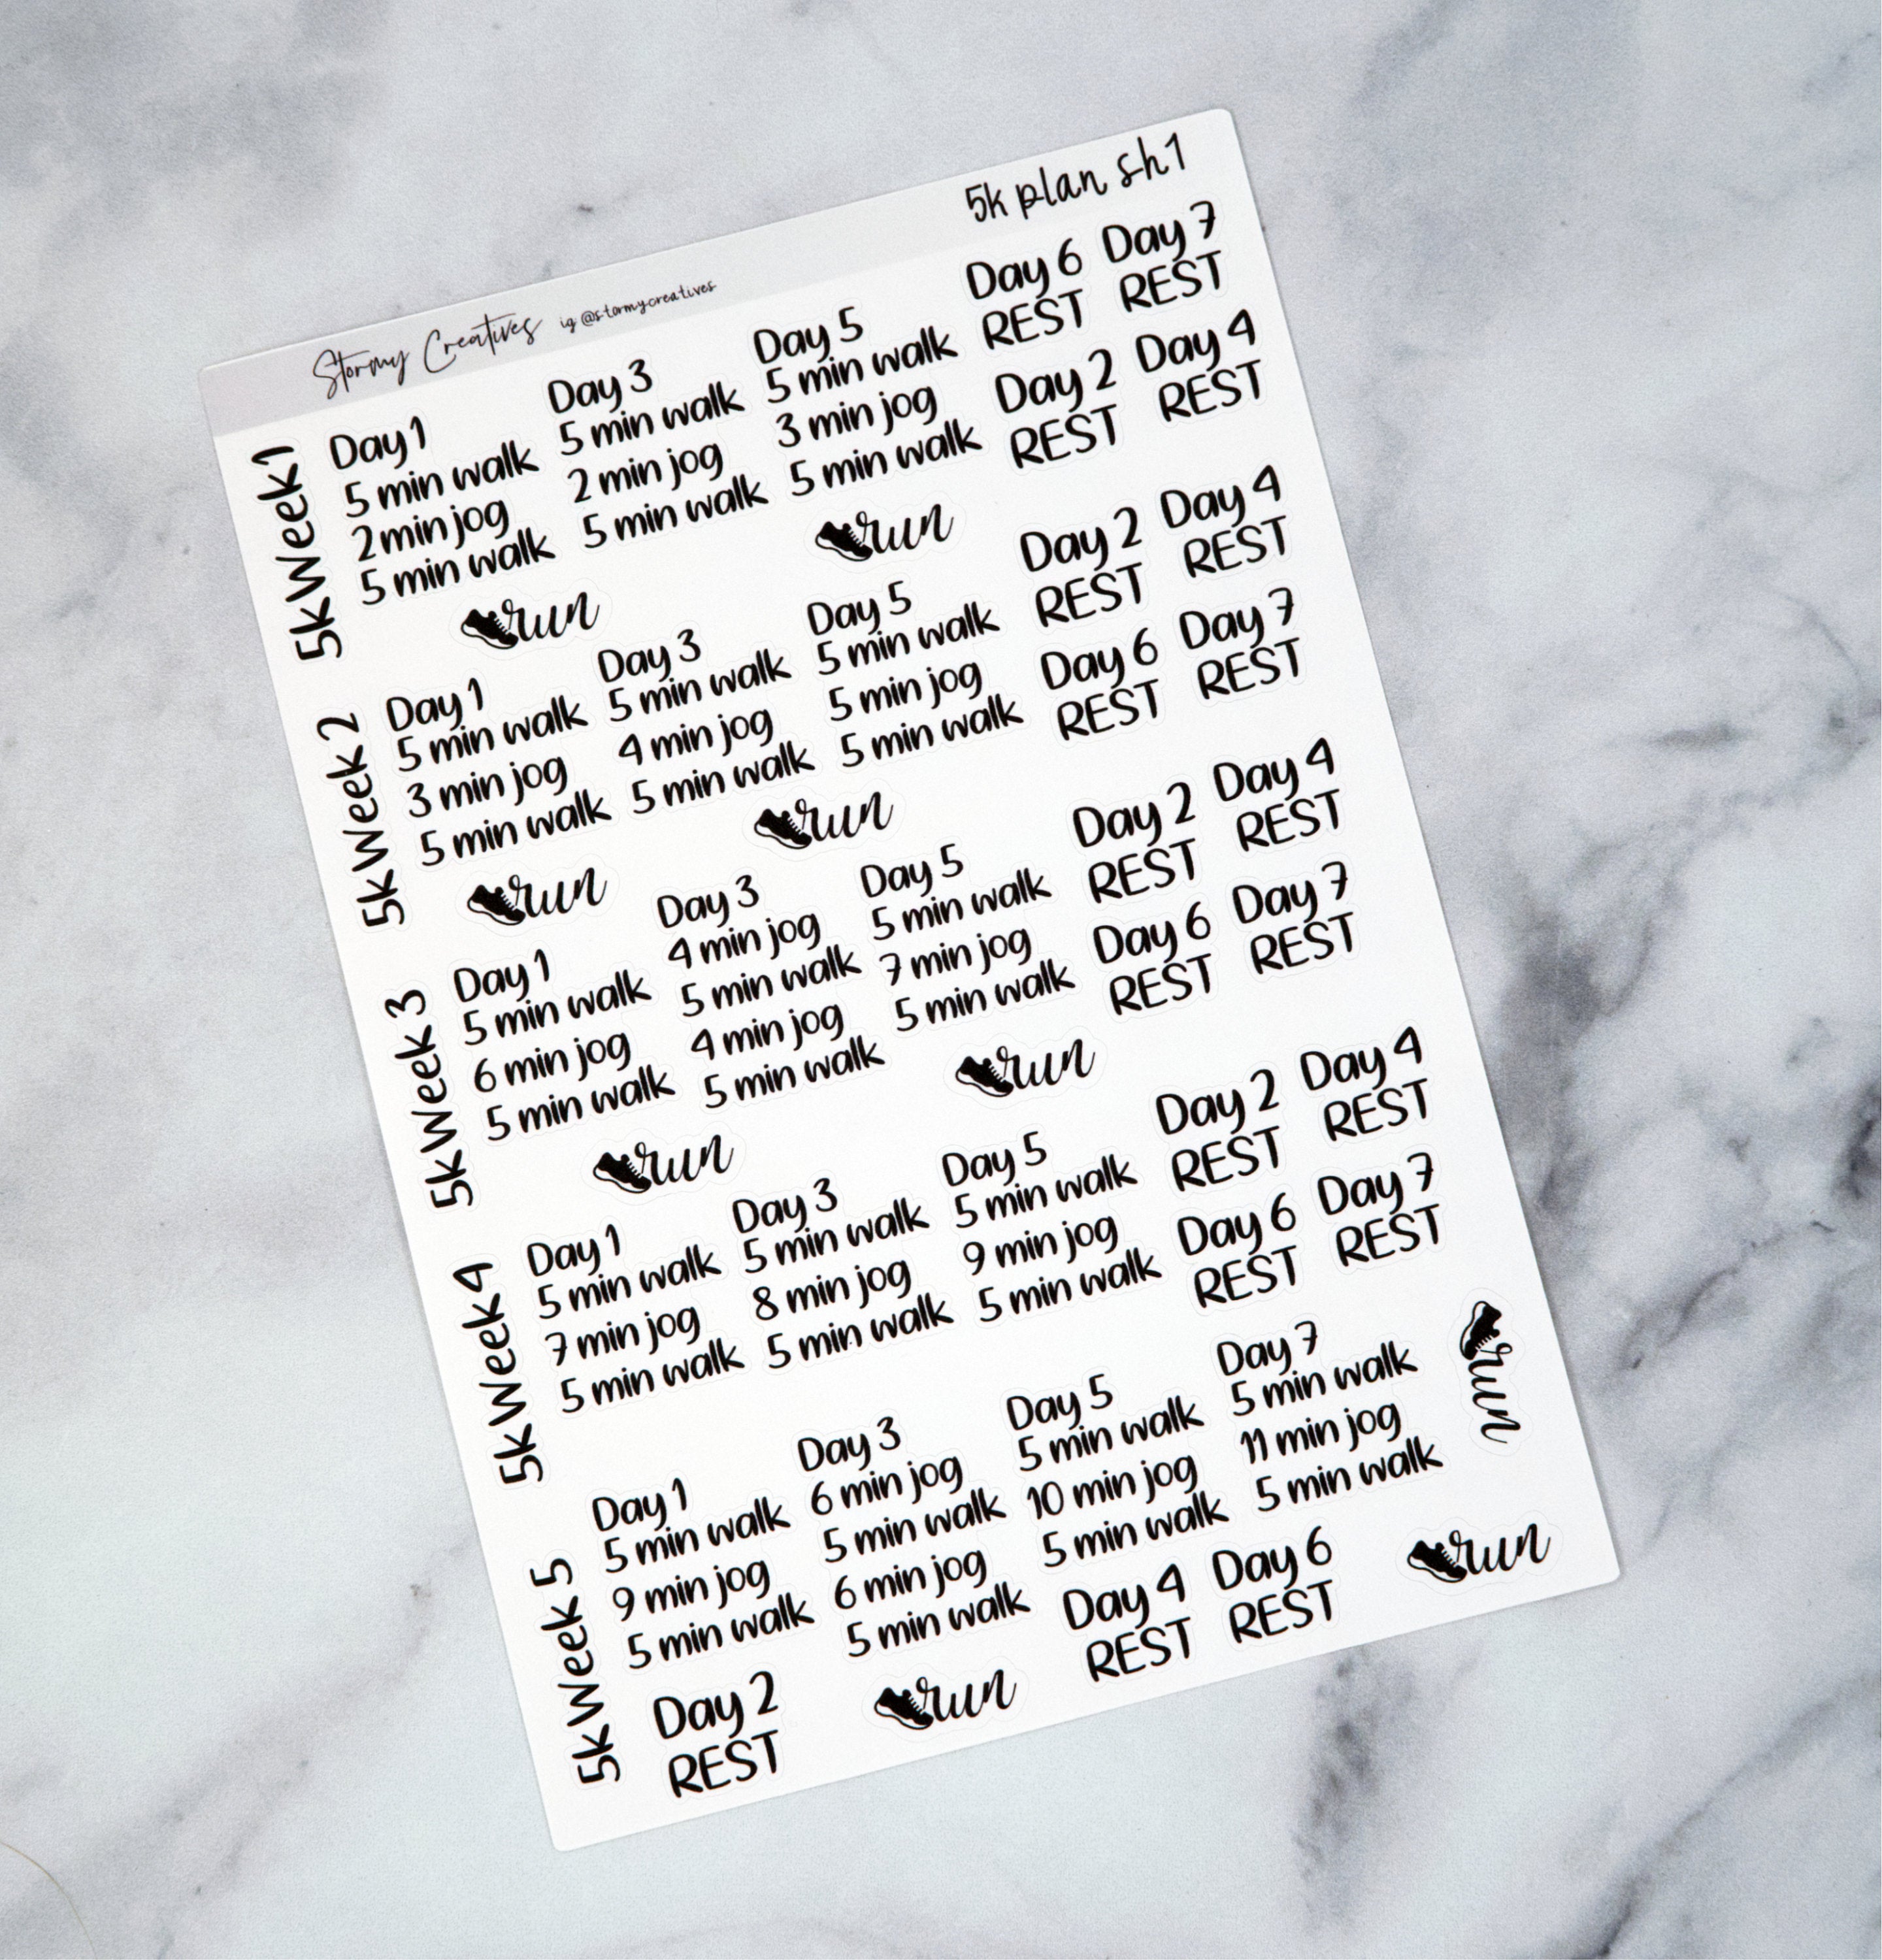 Stormy Creatives ig @stormycreatives
5k plan sh1
5k Week 1
Day 1
5 min walk
2 min jog
5 min walk
Day 3
5 min walk
2 min jog
5 min walk
Day 5
5 min walk
3 min jog
5 min walk
Day 6
REST
Day 7
REST
Day 2
REST
Day 4
REST
run
run
5k Week 2
Day 1
5 min walk
3 min jog
5 min walk
Day 3
5 min walk
4 min jog
5 min walk
Day 5
5 min walk
5 min jog
5 min walk
Day 2
REST
Day 4
REST
Day 6
REST
Day 7
REST
run
run
5k Week 3
Day 1
5 min walk
6 min jog
5 min walk
Day 3
4 min jog
5 min walk
4 min jog
5 min walk
Day 5
5 min walk
7 min jog
5 min walk
Day 2
REST
Day 4
REST
Day 6
REST
Day 7
REST
run
run
5k Week 4
Day 1
5 min walk
7 min jog
5 min walk
Day 3
5 min walk
8 min jog
5 min walk
Day 5
5 min walk
9 min jog
5 min walk
Day 2
REST
Day 4
REST
Day 6
REST
Day 7
REST
5k Week 5
Day 1
5 min walk
9 min jog
5 min walk
Day 3
6 min jog
5 min walk
6 min jog
5 min walk
Day 5
5 min walk
10 min jog
5 min walk
Day 7
5 min walk
11 min jog
5 min walk
run
Day 2
REST
run
Day 4
REST
Day 6
REST
run